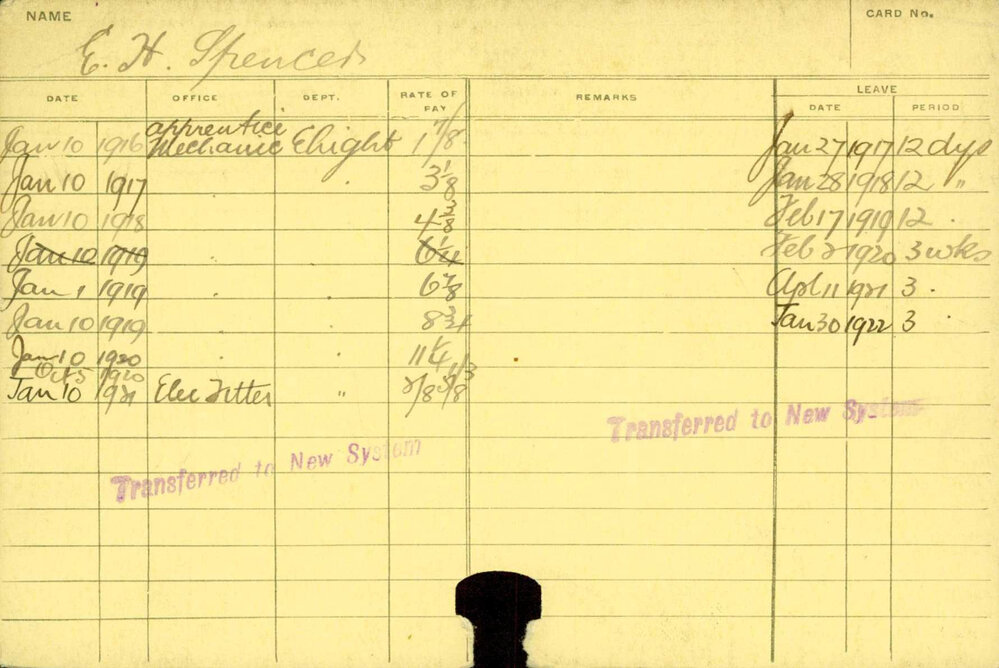 NAME
CARD No.
E. H. Spencer
DATE OFFICE DEPT. RATE OF PAY REMARKS LEAVE
DATE PERIOD
apprentice
Jan 10 1916 Mechanic Elright 1 7/8 Jan 27 1917 12 dys
Jan 10 1917 3 1/8 Jan 28 1918 12 "
Jan 10 1918 4 Feb 17 1919 12 .
Jan 10 1919 6 1/4 Feb 1920 3 wks
Jan 1 1919 6 7/8 Apl 11 1921 3 .
Jan 10 1919 8 3/4 Jan 30 1922 3
Jan 10 1920 11 1/4
Oct 5 1920 1/3
Jan 10 1921 Elec Fitter " 2/8
Transferred to New System
Transferred to New System